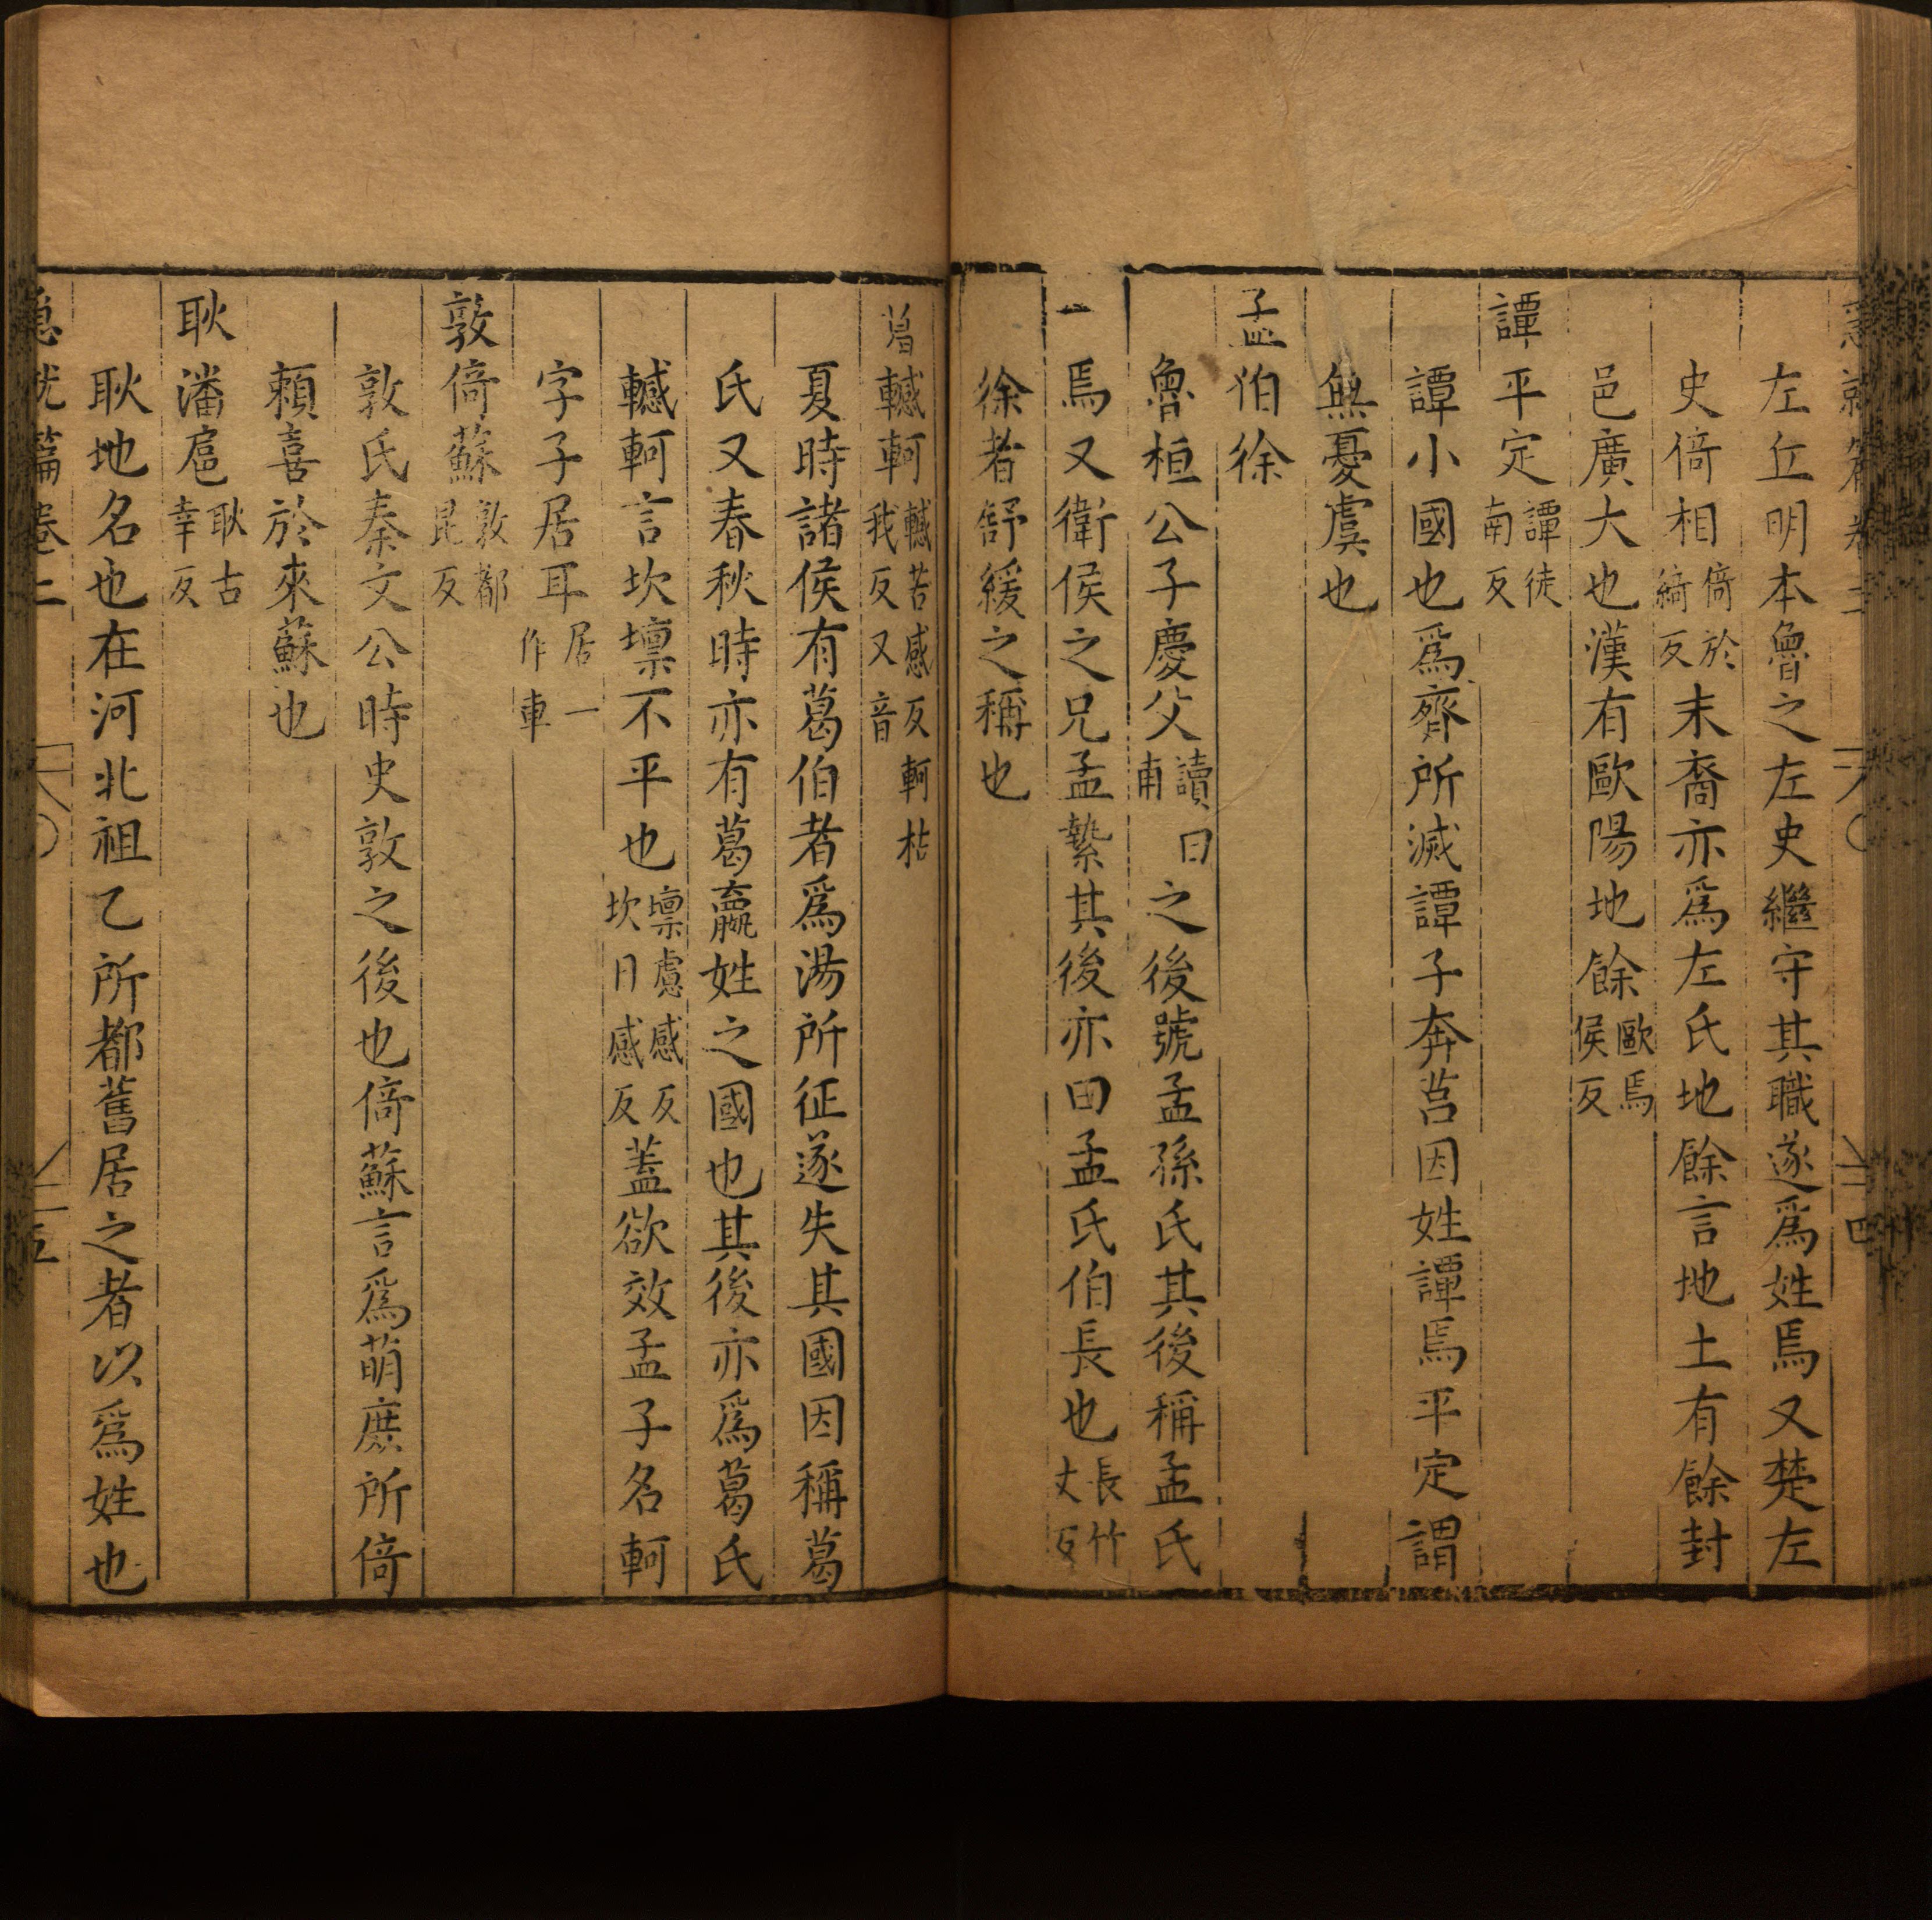 左丘明本魯之左史繼守其職遂爲姓焉又楚左
史倚相倚於綺反末裔亦爲左氏地餘言地土有餘封
邑廣大也漢有歐陽地餘歐焉侯反
譚平定譚徒南反
譚小國也爲齊所滅譚子奔莒因姓譚焉平定謂
無憂虞也
孟伯徐
魯桓公子慶父讀曰甫之後號孟孫氏其後稱孟氏
焉又衛侯之兄孟縶其後亦曰孟氏伯長也長竹丈反
徐者舒緩之稱也
葛轗軻轗苦感反軻枯我反又音
夏時諸侯有葛伯者爲湯所征遂失其國因稱葛
氏又春秋時亦有葛嬴姓之國也其後亦爲葛氏
轗軻言坎壈不平也壈慮感反坎口感反蓋欲效孟子名軻
字子居耳居一作車
敦倚蘇敦都昆反
敦氏秦文公時史敦之後也倚蘇言爲萌庶所倚
賴喜於來蘇也
耿潘扈耿古幸反
耿地名也在河北祖乙所都舊居之者以爲姓也
急就篇卷二
五